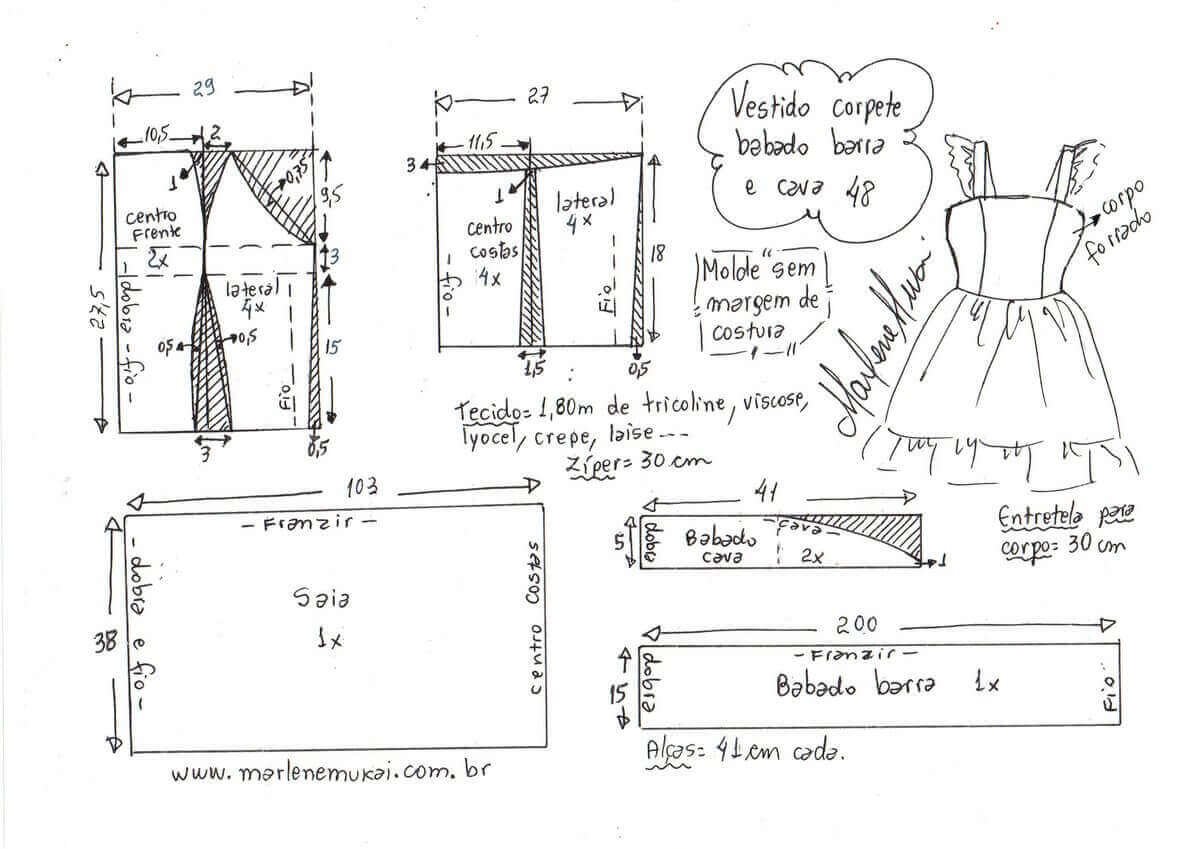 29
10,5
2
1
0,75
9,5
centro
Frente
2x
3
lateral
4x
27,5
- dobra - fio -
0,5
0,5
Fio
15
3
0,5
27
11,5
3
1
lateral
4x
centro
costas
4x
18
- fio -
Fio
1,5
0,5
Vestido corpete
babado barra
e cava 48
Molde sem
margem de
costura
corpo
forrado
Marlene Mukai
Tecido= 1,80m de tricoline, viscose,
lyocel, crepe, laise ---
Zíper= 30 cm
103
- Franzir -
- dobra e fio -
38
Saia
1x
centro costas
www.marlenemukai.com.br
41
5
dobra
Babado
cava
- cava -
2x
1
Entretela para
corpo= 30 cm
200
- Franzir -
15
dobra
Babado barra 1x
Fio
Alças= 41 cm cada.